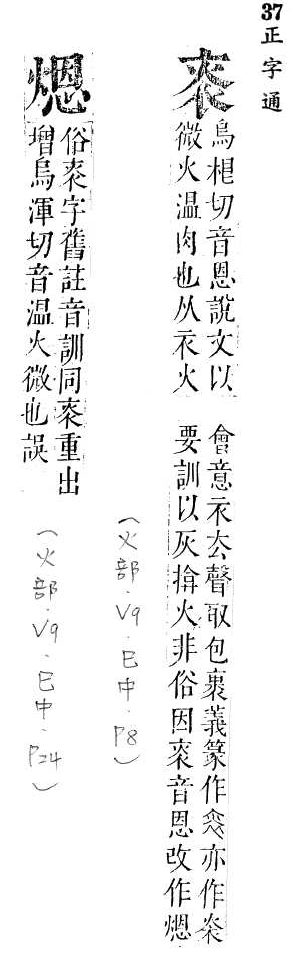 37 正字通
烏根切音恩說文以
微火温肉也从衣火
會意衣厺聲取包裹義篆作亦作
要訓以灰揜火非俗因音恩改作煾
煾
俗字舊註音訓同重出
增烏渾切音温火微也誤
(火部.V9.巳中.P8)
(火部.V9.巳中.P24)